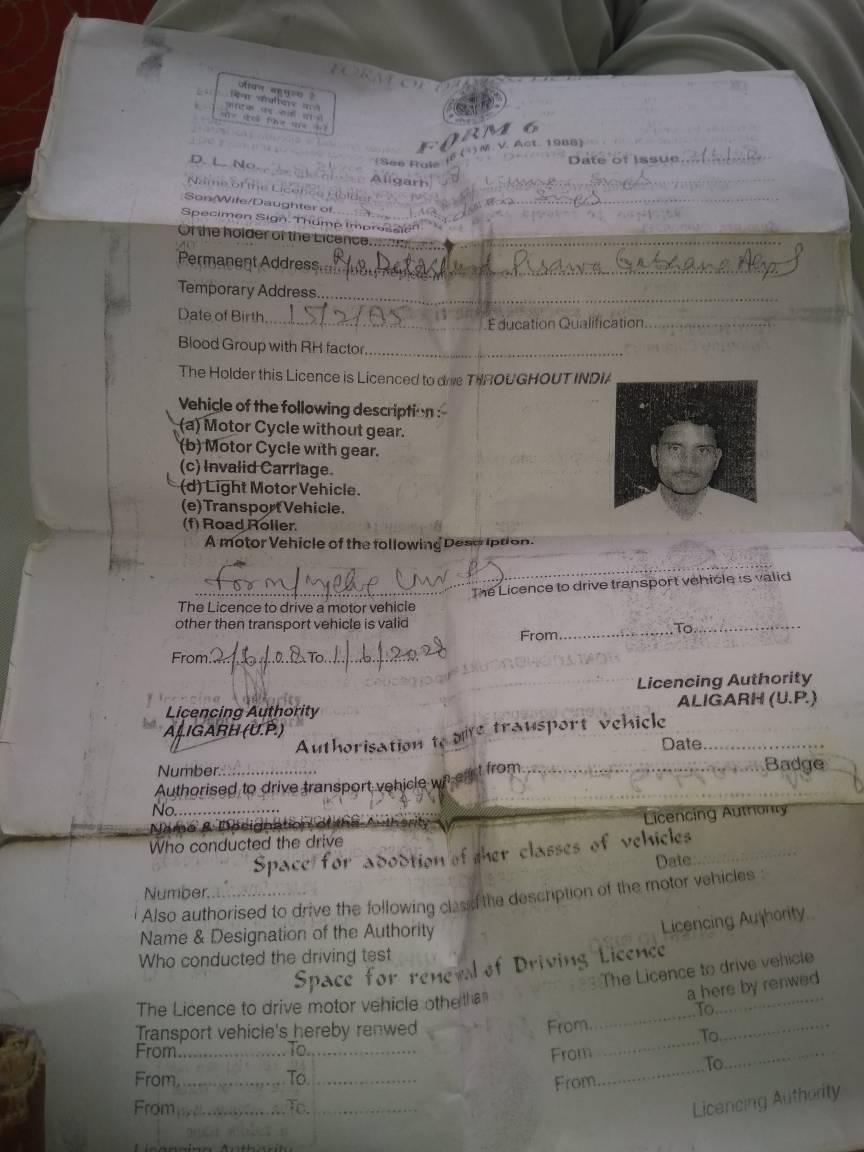 FORM OF DRIVING LICE
जीवन बहुमूल्य है
बिना चौकीदार वाले
फाटक पर रुकें दोनों
ओर देखें फिर पार करें
FORM 6
(See Rule 16 (1) M. V. Act. 1988)
D. L. No. Date of Issue 2/6/08
Aligarh
Name of the Licence Holder Singh
Son/Wife/Daughter of Singh
Specimen Sign. Thump Impression
Of the holder of the Licence
Permanent Address R/o Pisawa Gabhana
Temporary Address
Date of Birth 15/2/85 Education Qualification
Blood Group with RH factor
The Holder this Licence is Licenced to drive THROUGHOUT INDIA
Vehicle of the following description :-
(a) Motor Cycle without gear.
(b) Motor Cycle with gear.
(c) Invalid Carriage.
(d) Light Motor Vehicle.
(e) Transport Vehicle.
(f) Road Roller.
A motor Vehicle of the following Description.
The Licence to drive a motor vehicle
other then transport vehicle is valid
The Licence to drive transport vehicle is valid
From 2/6/08 To 1/6/2028
From To
Licencing Authority
ALIGARH (U.P.)
Licencing Authority
ALIGARH (U.P.)
Authorisation to drive transport vehicle
Number Date
Authorised to drive transport vehicle with effect from Badge
No.
Name & Designation of the Authority
Who conducted the drive
Licencing Authority
Space for adodtion of other classes of vehicles
Number Date
Also authorised to drive the following class of the description of the motor vehicles :
Name & Designation of the Authority
Who conducted the driving test
Licencing Authority
Space for renewal of Driving Licence
The Licence to drive motor vehicle othethan
Transport vehicle's hereby renwed
The Licence to drive vehicle
a here by renwed
From To
From To
From To
From To
From To
From To
Licencing Authority
Licencing Authority